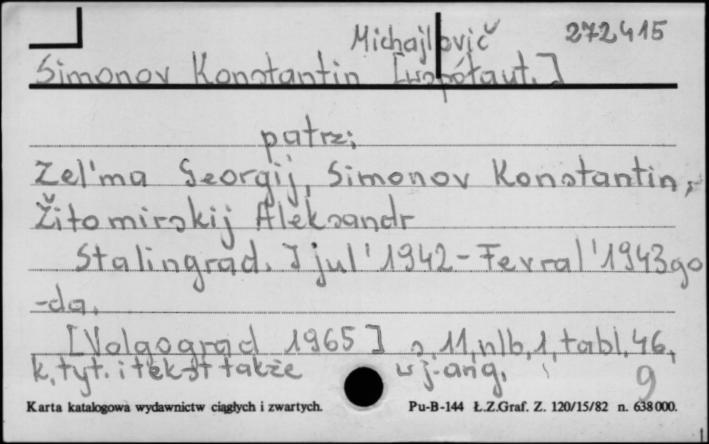 Michajlovič 272415
Simonov Konstantin [współaut.]
patrz:
Zel'ma Georgij, Simonov Konstantin,
Žitomirskij Aleksandr
Stalingrad. Ijul' 1942 - Fevral' 1943 go
-da.
[Volgograd 1965] s. 11, nlb, 1, tabl. 46,
k. tyt. i tekst także w j. ang.
9
Karta katalogowa wydawnictw ciągłych i zwartych. Pu-B-144 Ł.Z.Graf. Z. 120/15/82 n. 638 000.